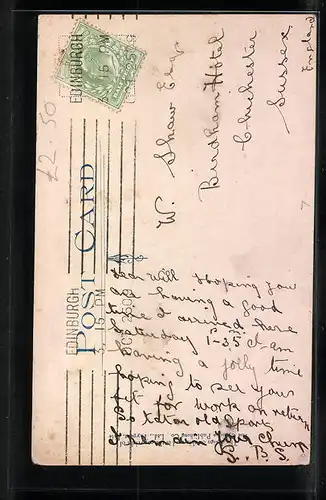 EDINBURGH
5 15 PM
£2.50
POST CARD
EDINBURGH
5 15 PM
W. Shaw Esq.
Birdham Hotel
Chichester
Sussex
England
7
Dear Will Hoping you
are having a good
time I arrived here
Saturday 1-35 I am
having a jolly time
hoping to see you
fit for work on return
So old Sport
I am your Chum